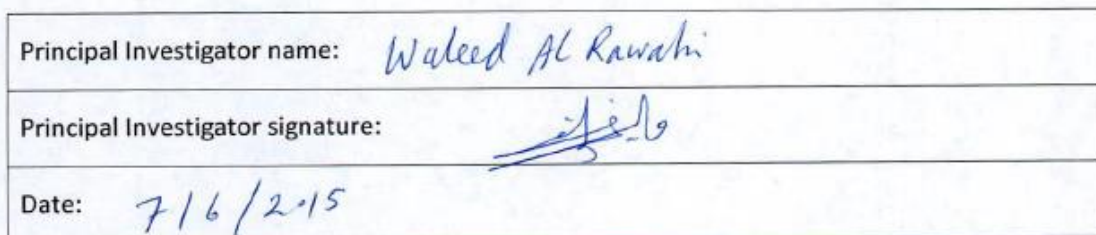 Principal Investigator name: Waleed Al Rawahi
Principal Investigator signature:
Date: 7/6/2015